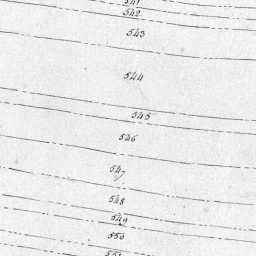 541
542
543
544
545
546
547
548
549
550
551